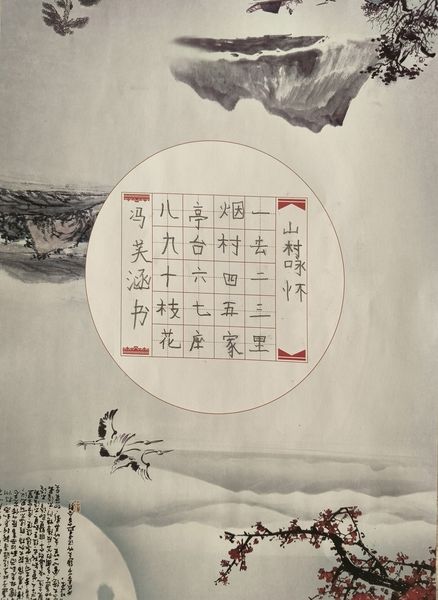 山村咏怀
一去二三里
烟村四五家
亭台六七座
八九十枝花
冯芙涵书